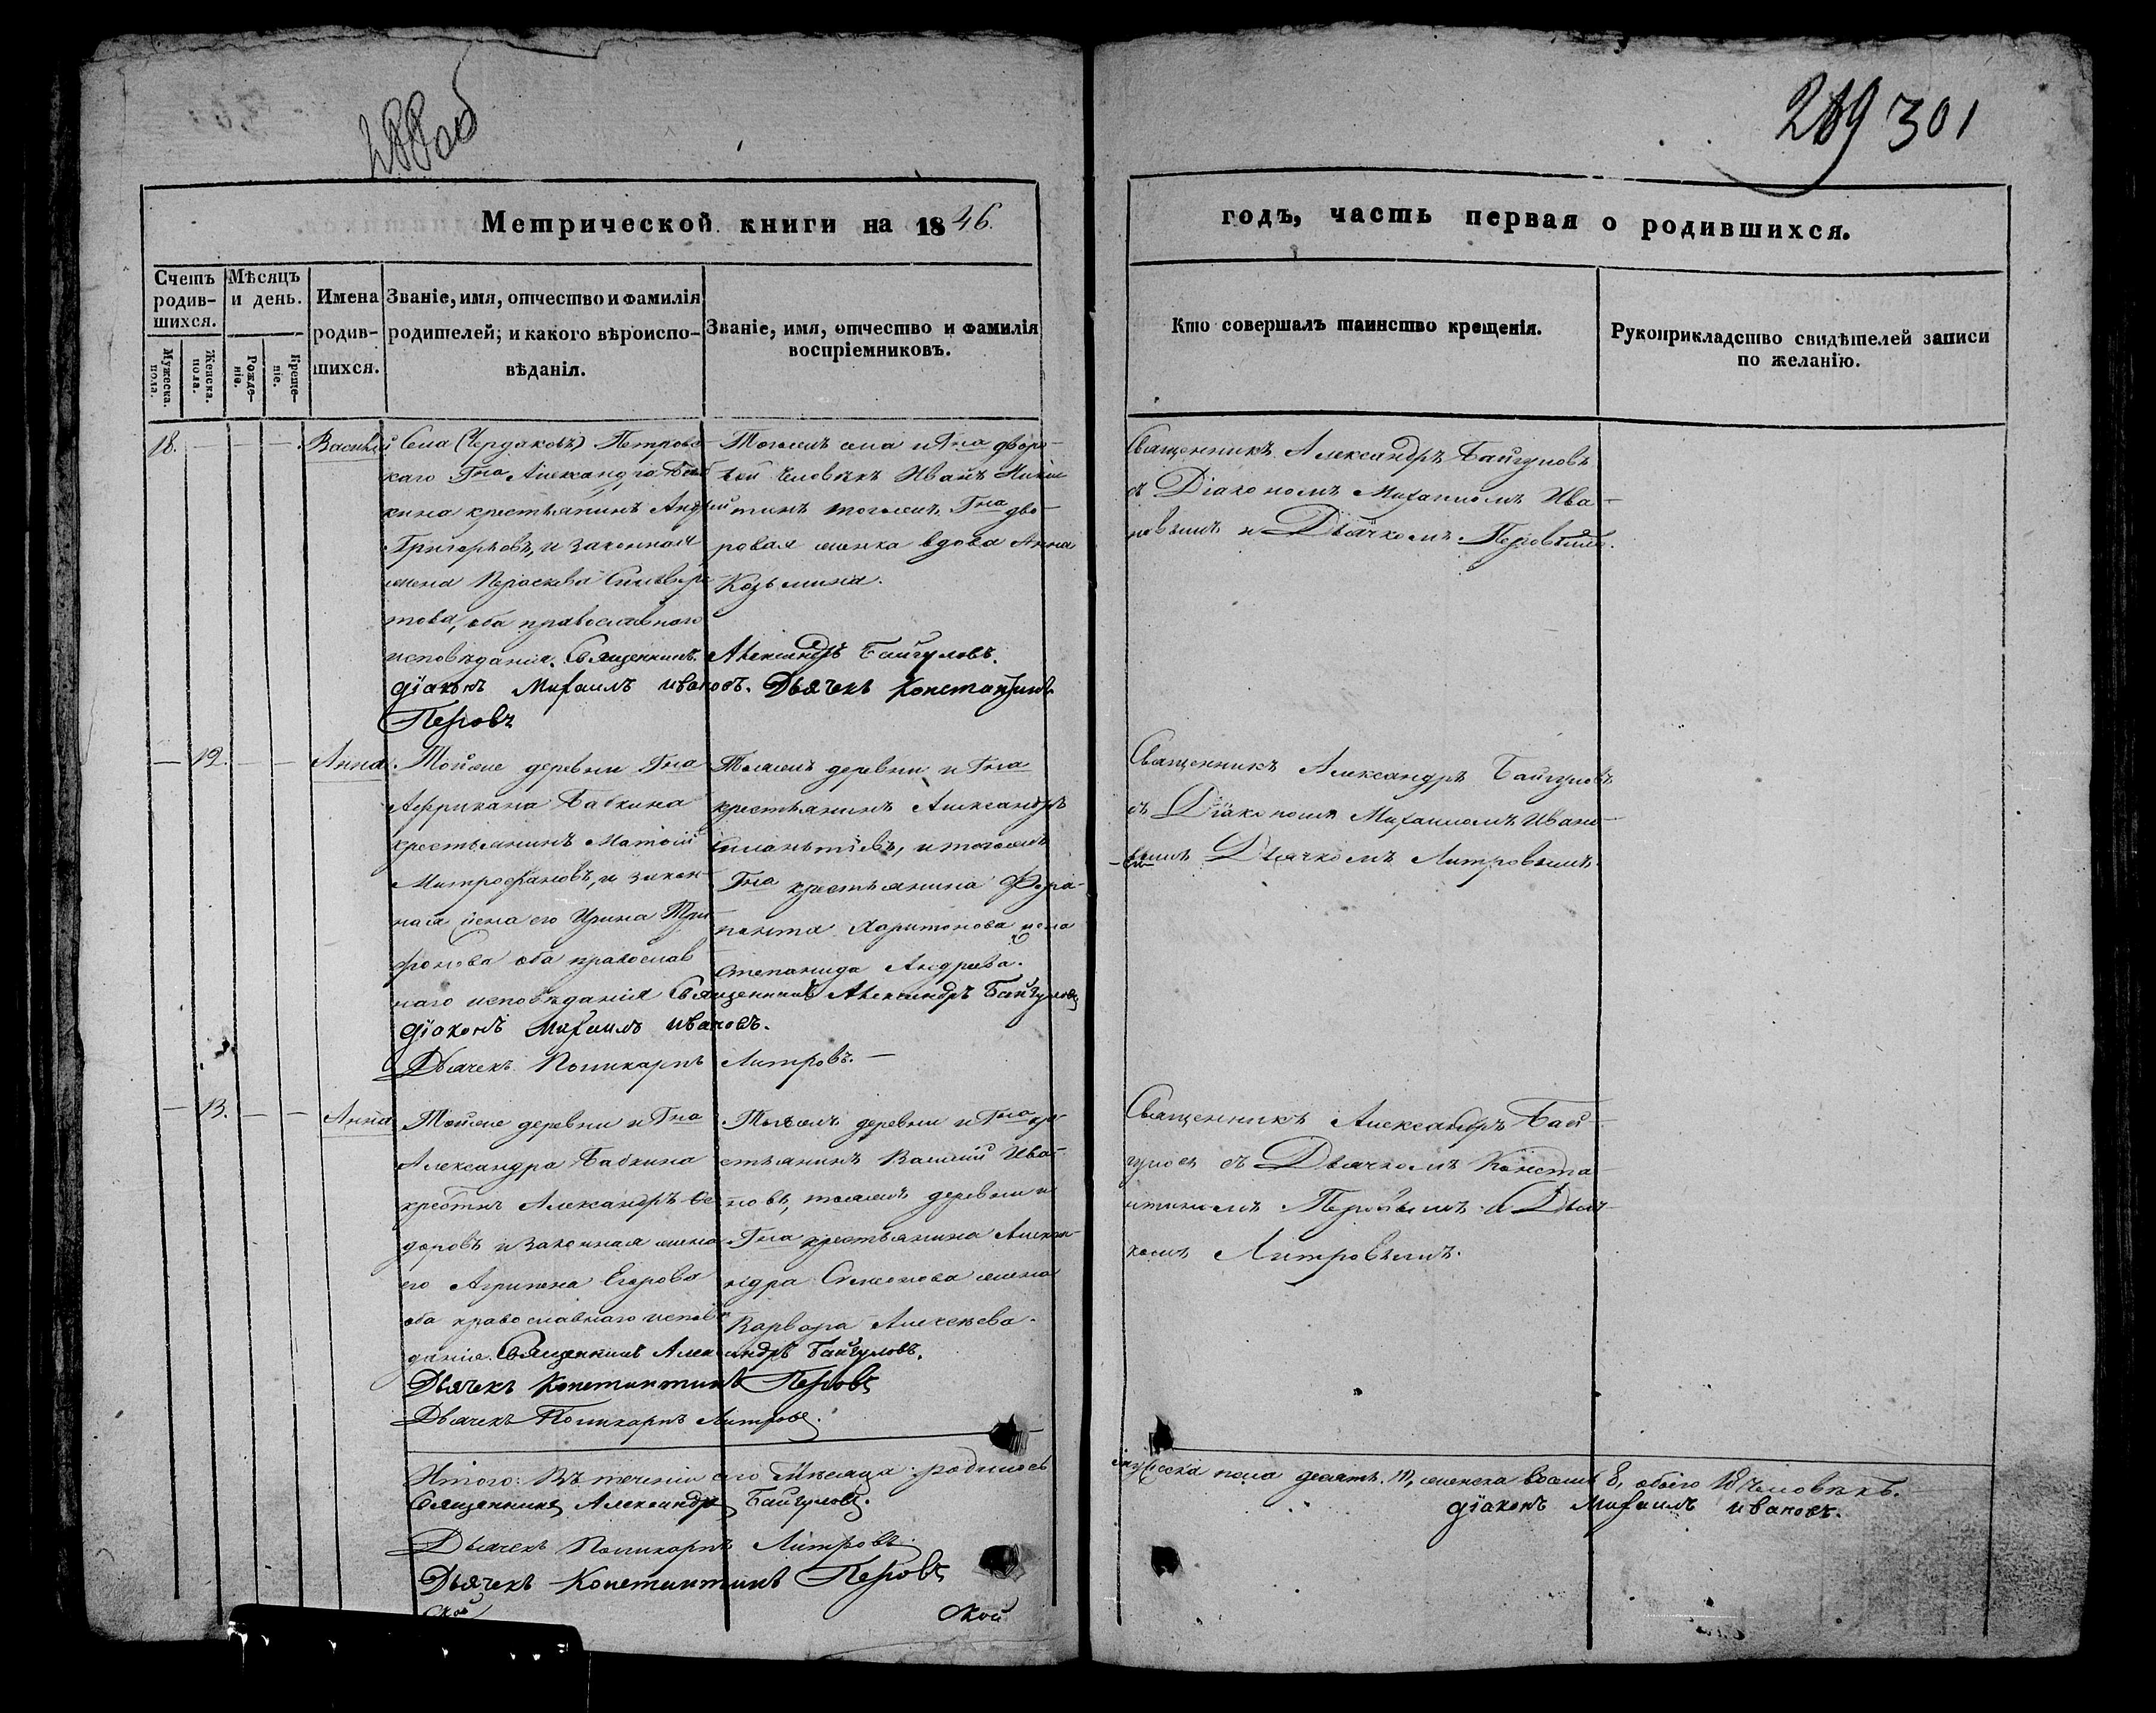 288 об
289 301
Метрической книги на 1846.
годъ, часть первая о родившихся.
Счетъ родив-
шихся.
Мѣсяцъ
и день.
Имена
родив-
шихся.
Званіе, имя, отчество и фамилія
родителей; и какого вѣроиспо-
вѣданія.
Званіе, имя, отчество и фамилія
воспріемниковъ.
Кто совершалъ таинство крещенія.
Рукоприкладство свидѣтелей записи
по желанію.
Мужеска.
пола.
Женска.
пола.
Рожде-
ніе.
Креще-
ніе.
18. — — — Василій
Села (Чердаковъ) Петровс-
каго Гна Александра Баб
кина крестьянинъ Андрей
Григорьевъ, и законная
жена Праскева
това, оба православнаго
исповѣданія. Священникъ Александръ Байгуловъ.
діаконъ Михаилъ Ивановъ. Дьячекъ Константинъ
Перовъ
Тогожъ села и Гна дворо-
вой человѣкъ Иванъ
тинъ тогожъ Гна дво-
ровая женка вдова Анна
Козьмина.
Священникъ Александръ Байгуловъ
съ Діакономъ Михаиломъ Ива-
новымъ и Дьячкомъ Перовымъ.
— 12. — — Анна.
Тойже деревни Гна
Африкана Бабкина
крестьянинъ
Митрофановъ, и закон-
ная жена его Ирина Три-
фонова оба православ
наго исповѣданія Священникъ Александръ Байгуловъ
діаконъ Михаилъ Ивановъ.
Дьячекъ Поликарпъ Литровъ. —
Тойжъ деревни и Гна
крестьянинъ Александръ
и тогожъ
Гна крестьянина Фера-
понта Харитонова жена
Степанида Андреева.
Священникъ Александръ Байгуловъ
съ Діакономъ Михаиломъ Ивано-
вымъ Дьячкомъ Литровымъ.
— 13. — — Анна
Тойже деревни и Гна
Александра Бабкина
крестьнъ Александръ Ѳе
доровъ и законная жена
его Агрипена Егорова
оба православнаго исповѣ
данія. Священникъ Александръ Байгуловъ.
Дьячекъ Константинъ Перовъ
Дьячекъ Поликарпъ Литровъ.
Тойжъ деревни и Гна кре-
стьянинъ Василий Ива-
новъ, тойжъ деревни и
Гна крестьянина Алекса-
ндра Симонова жена
Варвара Алексѣева.
Священникъ Александръ Бай-
гуловъ съ Дьячкомъ Конста-
нтиномъ Перовымъ и Дьяч-
комъ Литровымъ.
Итого: Въ теченіи сего Мѣсяца родилось
мужеска пола десять. 10, женска восемь 8, обоего 18 человѣкъ.
Священникъ Александръ Байгуловъ.
діаконъ Михаилъ Ивановъ.
Дьячекъ Поликарпъ Литровъ
Дьячекъ Константинъ Перовъ
ской